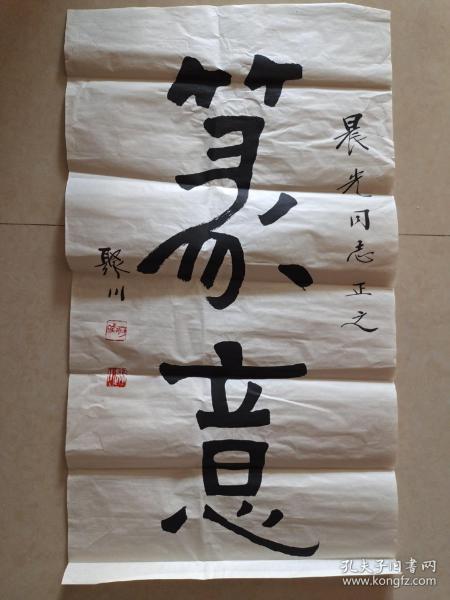 晨光同志正之
篆意
聚川
孔夫子旧书网
www.kongfz.com